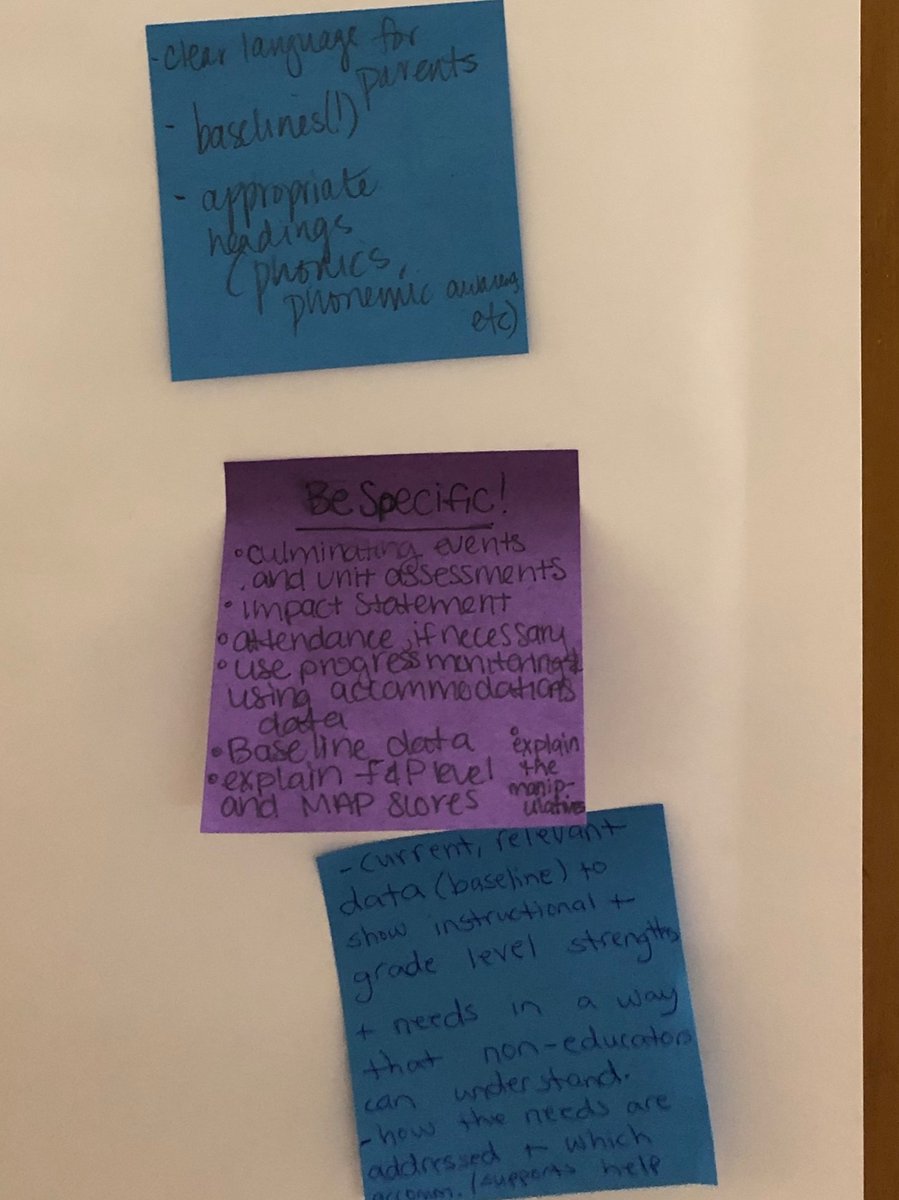 -clear language for
parents
- baselines(!)
- appropriate
headings
(phonics,
phonemic
etc)
Be Specific!
• culminating events
and unit assessments
• impact statement
• attendance, if necessary
• use progress monitoring &
using accommodations
data
• Baseline data
• explain f&P level
and MAP scores
• explain
the
manip-
ulatives
- Current, relevant
data (baseline) to
show instructional +
grade level strengths
+ needs in a way
that non-educators
can understand.
- how the needs are
addressed + which
accomm./supports help